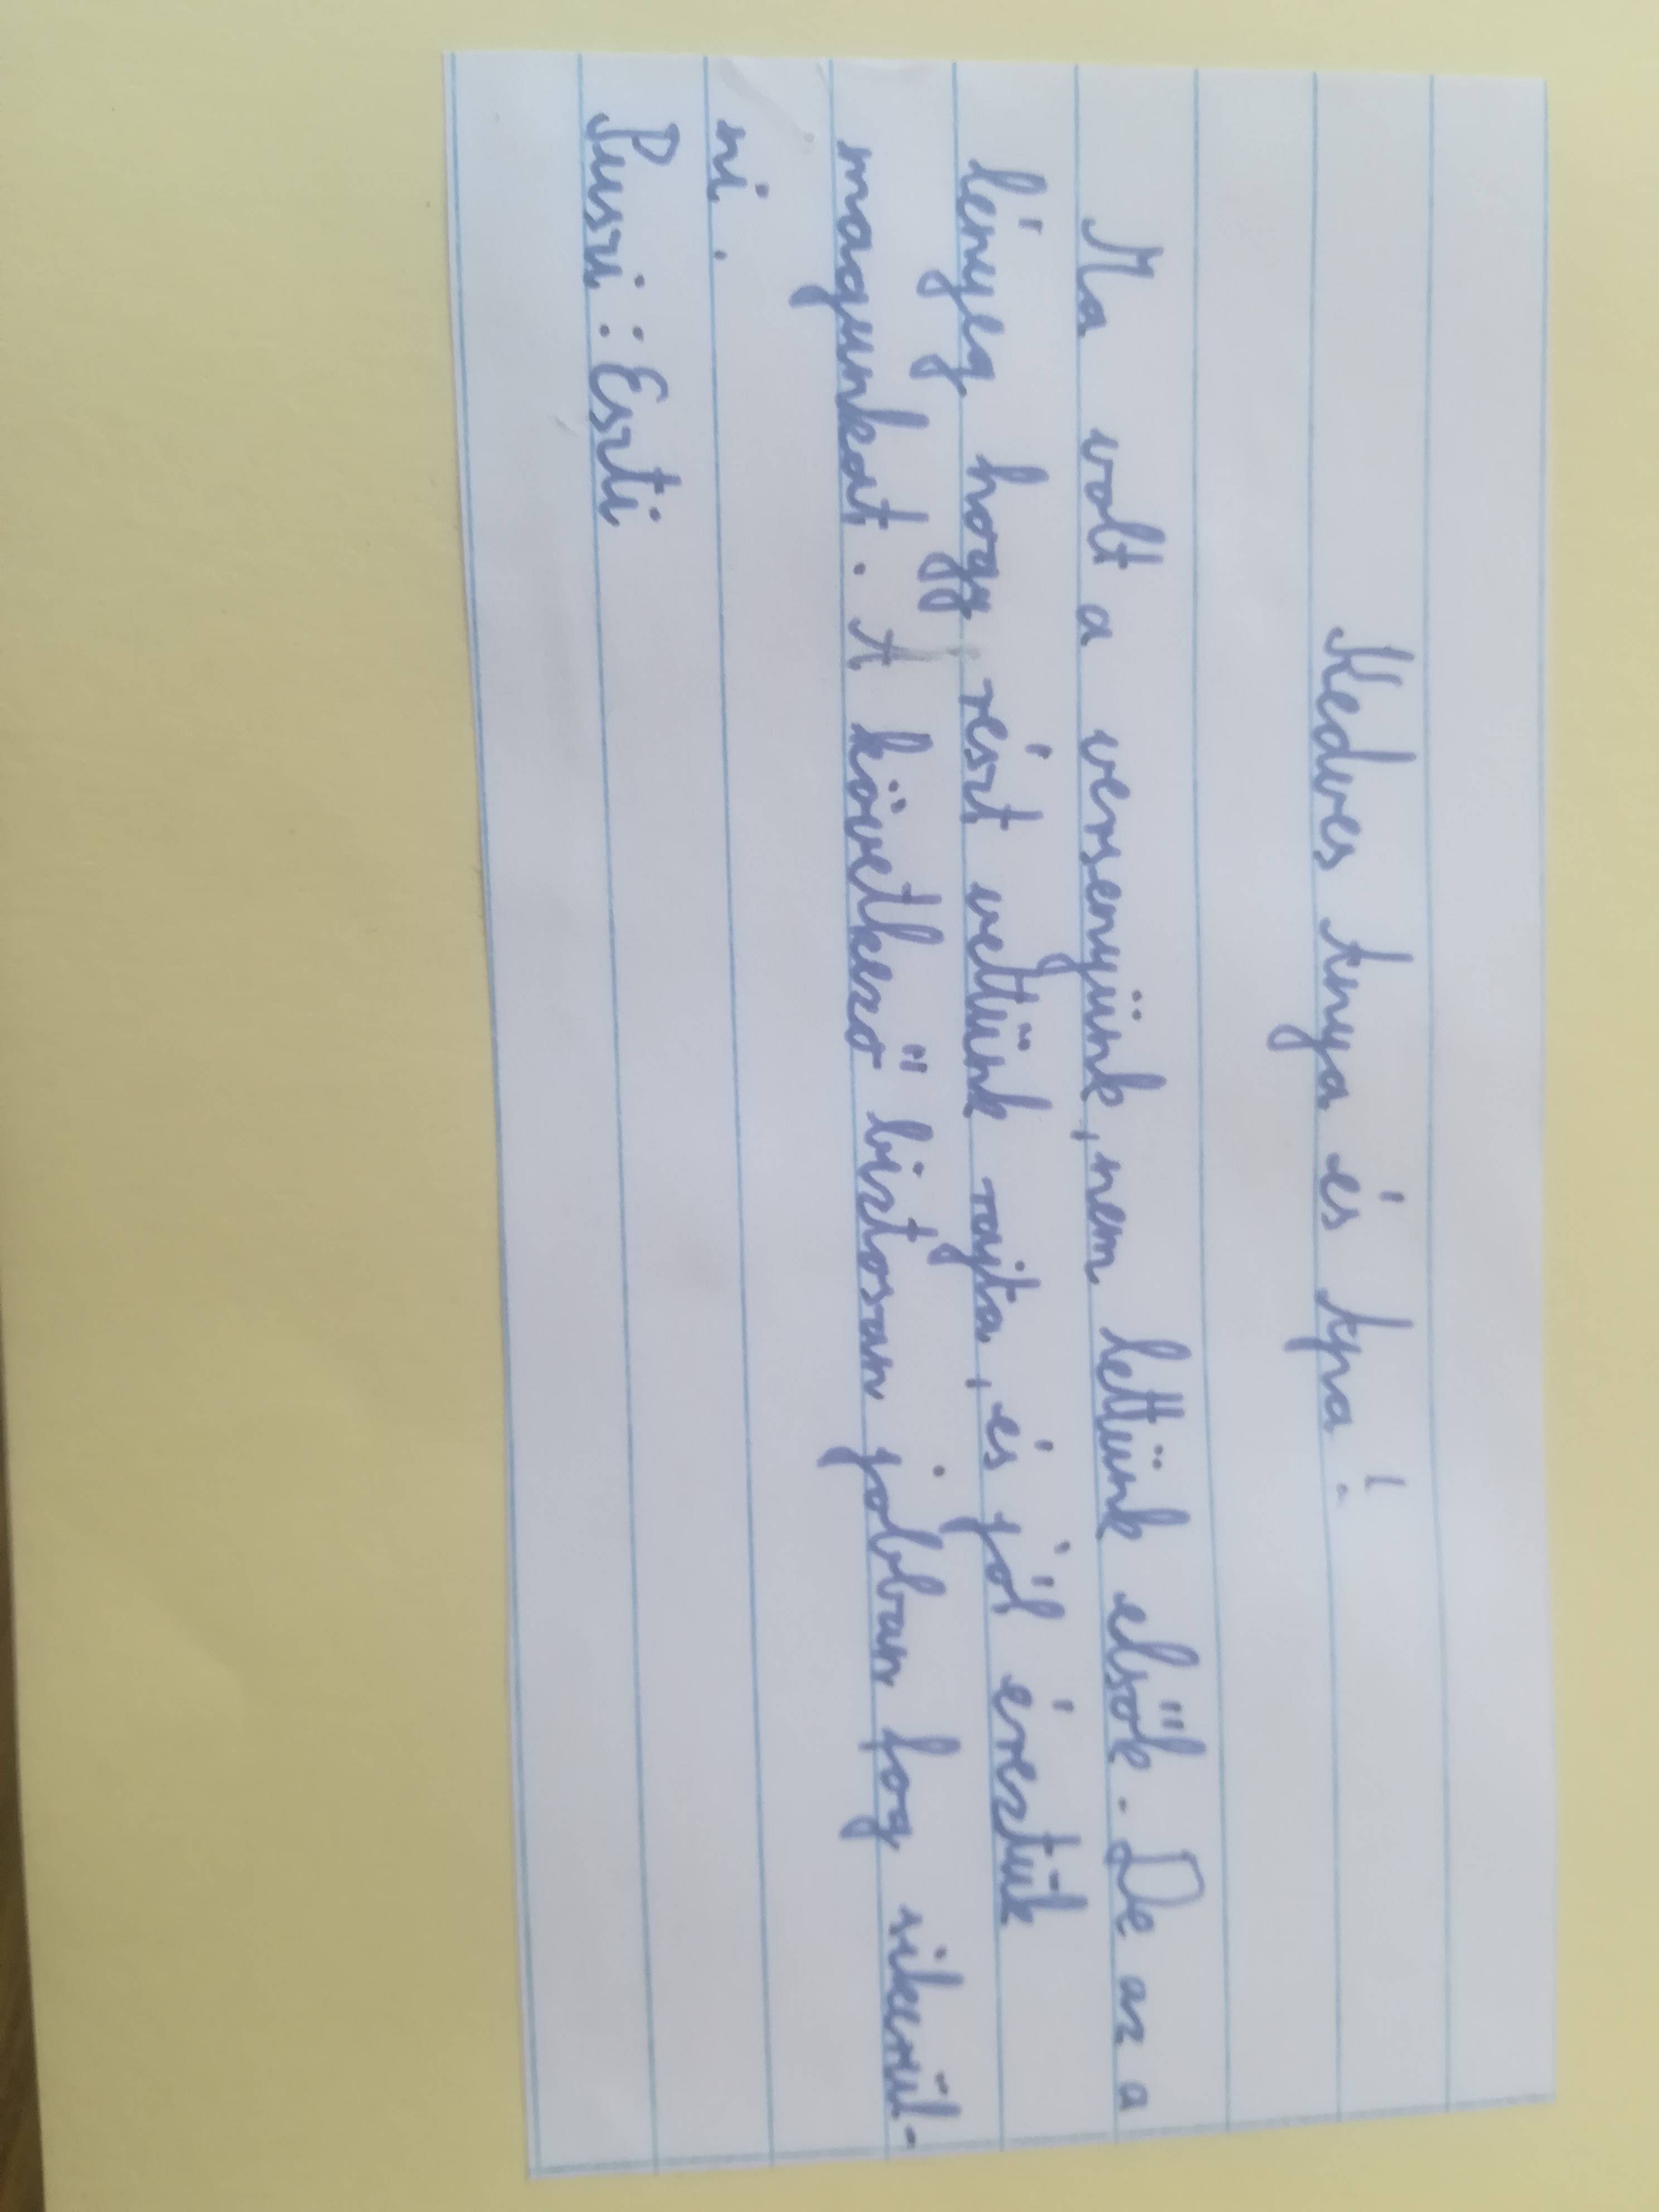 Kedves Anya és Apa!
Ma volt a versenyünk, nem lettünk elsők. De az a
lényeg hogy részt vettünk rajta, és jól éreztük
magunkat. A következő biztosan jobban fog sikerül-
ni.
Puszi: Eszti